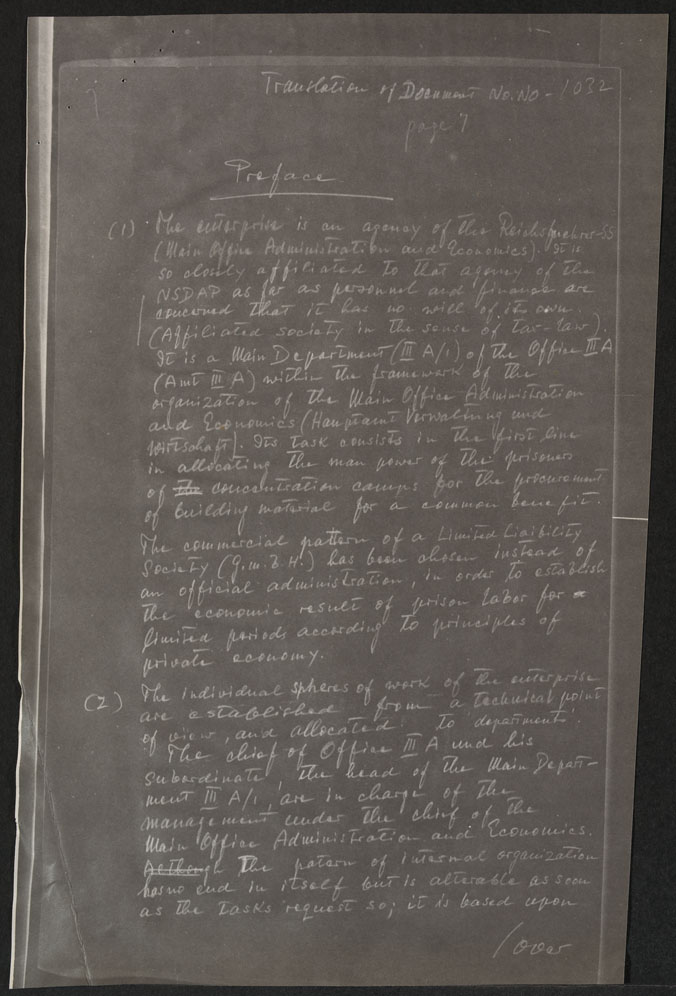 Translation of Document No. NO - 1032
page 7
Preface
(1) The enterprise is an agency of the Reichsfuehrer-SS
(Main Office Administration and Economics). It is
so closely affiliated to that agency of the
NSDAP as far as personnel and finance are
concerned that it has no will of its own.
(Affiliated society in the sense of tax-law).
It is a Main Department (III A/1) of the Office III A
(Amt III A) within the framework of the
organization of the Main Office Administration
and Economics (Hauptamt Verwaltung und
Wirtschaft). Its task consists in the first line
in allocating the man power of the prisoners
of the concentration camps for the procurement
of building material for a common benefit.
The commercial pattern of a Limited Liability
Society (g.m.b.H.) has been chosen instead of
an official administration, in order to establish
the economic result of prison labor for a
limited periods according to principles of
private economy.
(2) The individual spheres of work of the enterprise
are established from a technical point
of view, and allocated to department.
The chief of Office III A und his
subordinate, the head of the Main Depart-
ment III A/1, are in charge of the
management under the chief of the
Main Office Administration and Economics.
Although The patern of internal organization
has no end in itself but is alterable as soon
as the tasks request so; it is based upon
/over